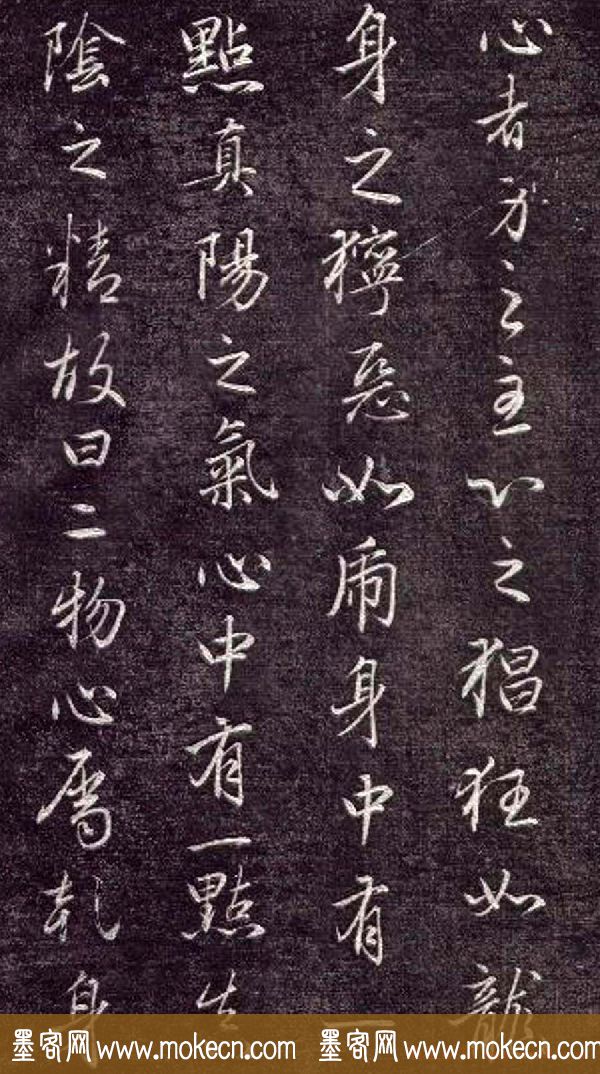 心者身之主心之猖狂如龍
身之獰惡如虎身中有一
點真陽之氣心中有一點真
陰之精故曰二物心屬乾身
墨客网 www.mokecn.com 墨客网 www.mokecn.com